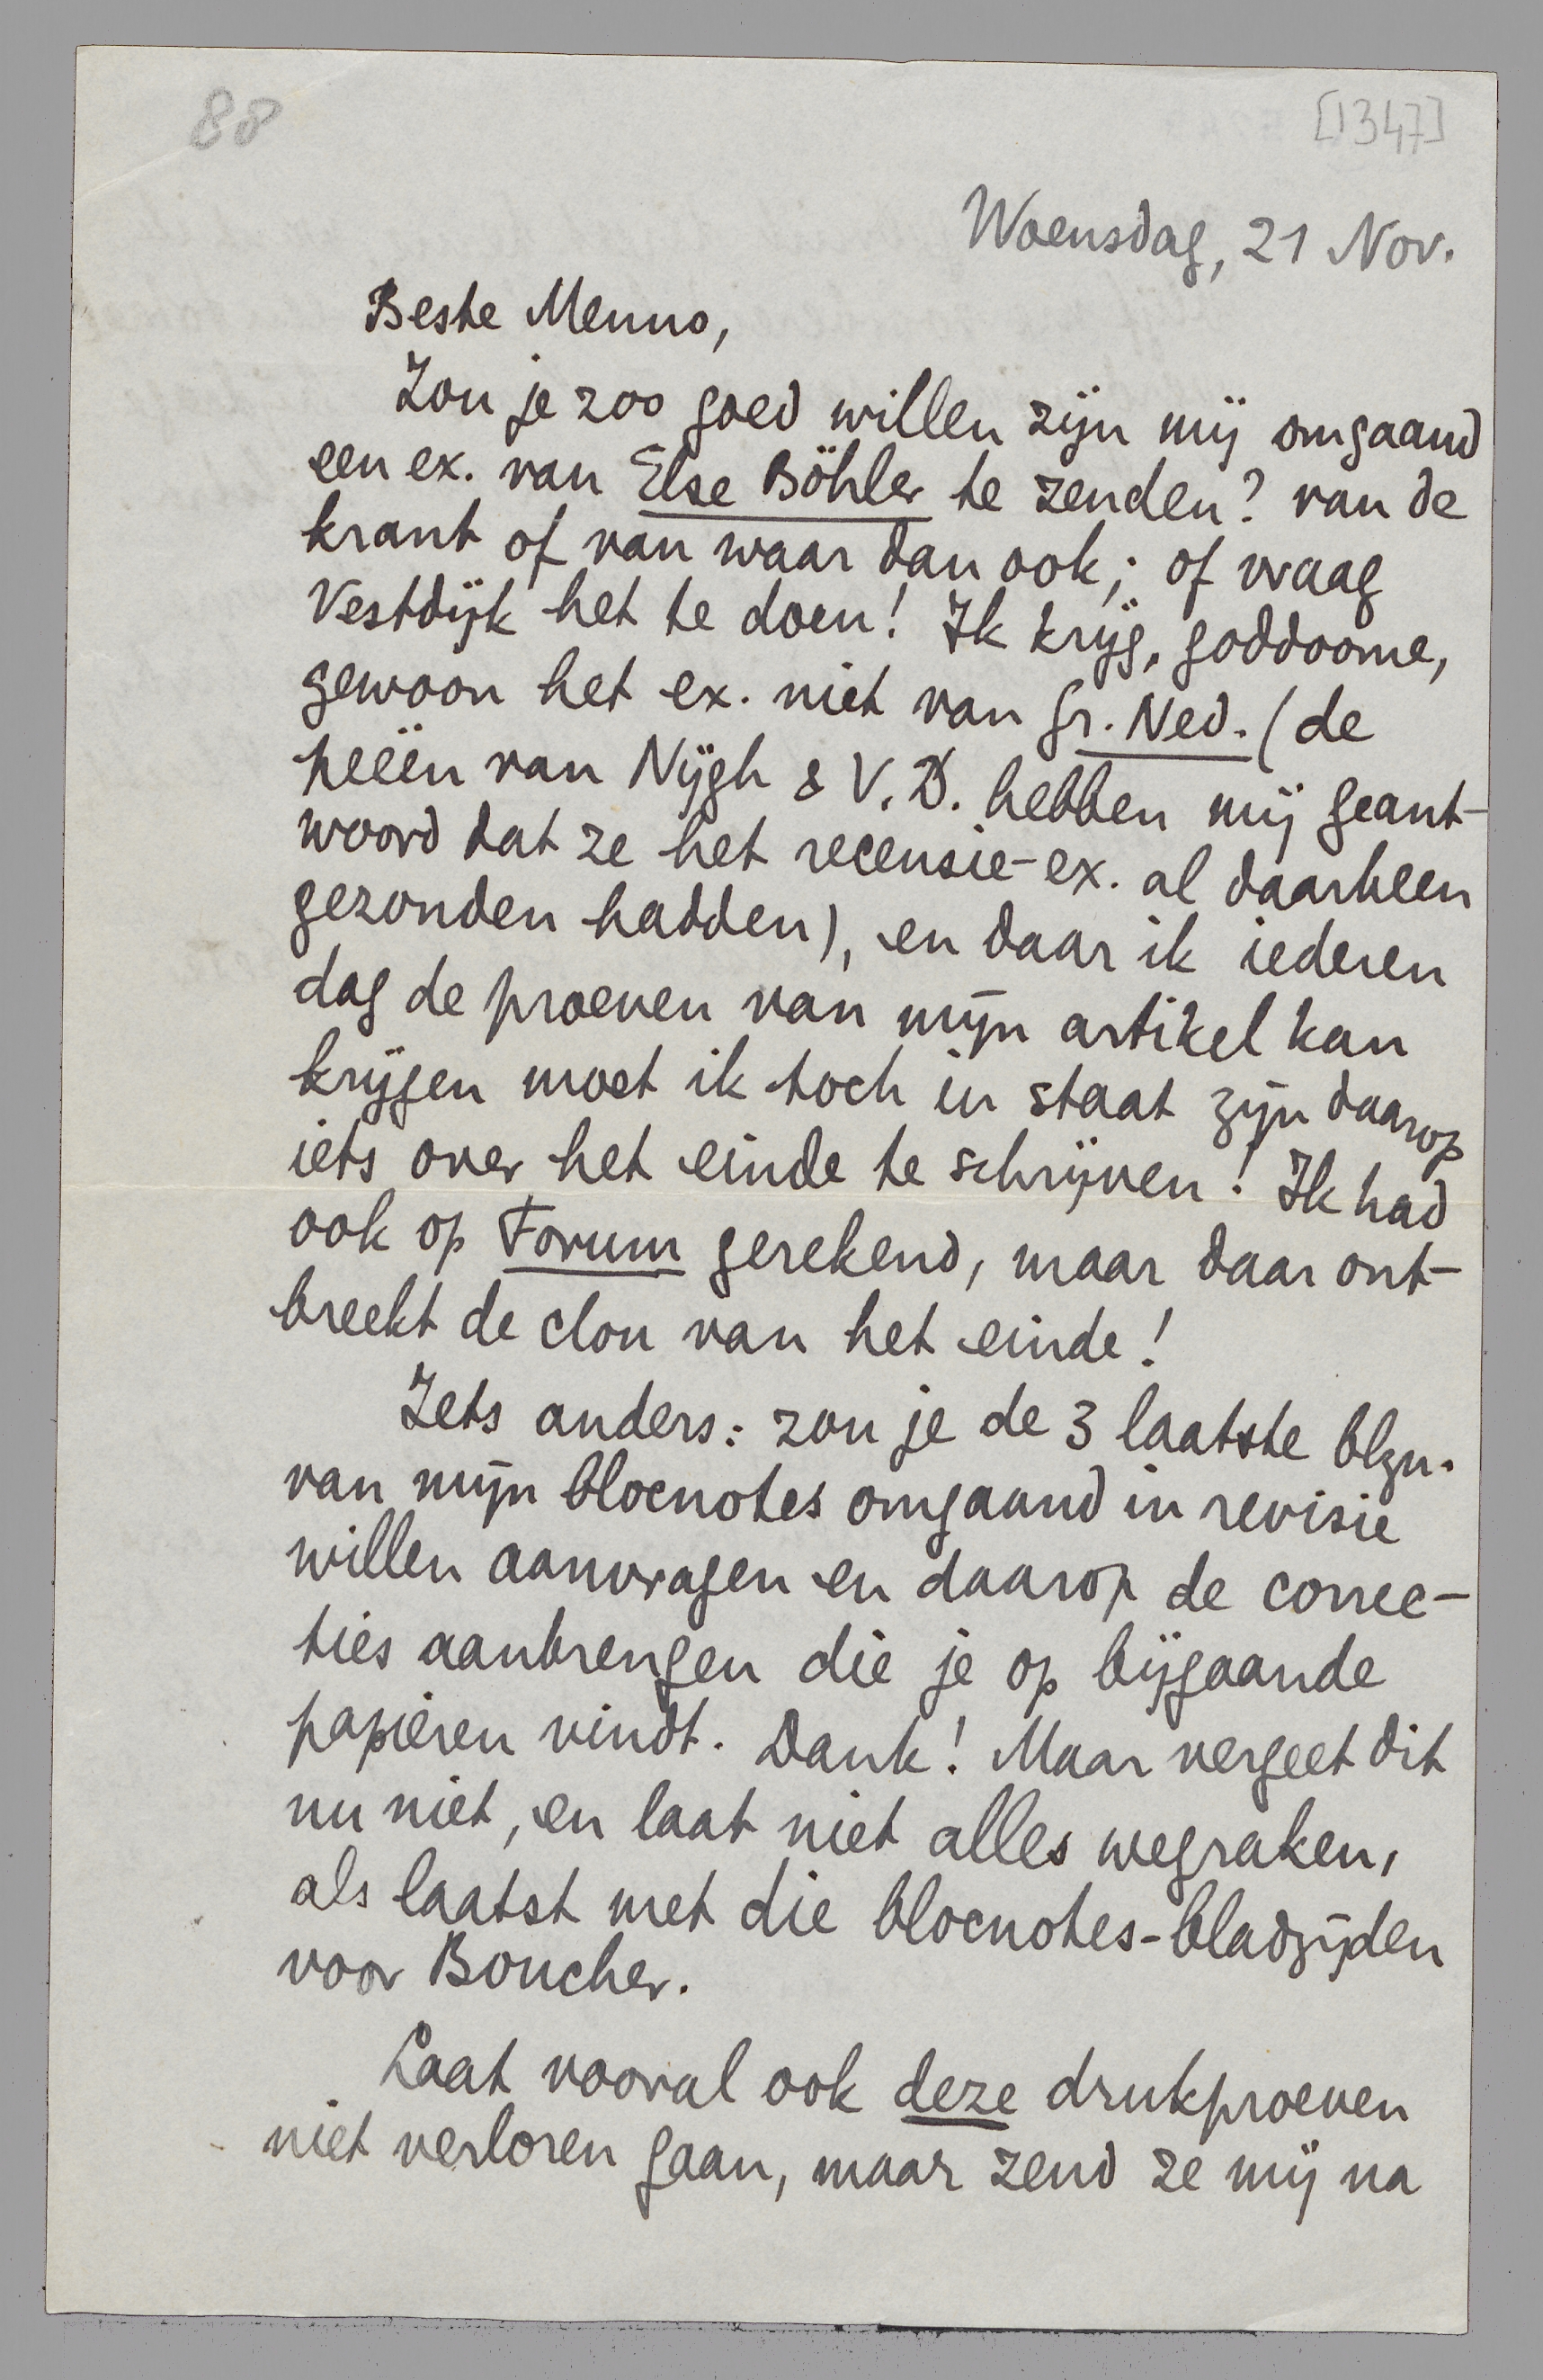 88
[1347]
Woensdag, 21 Nov.
Beste Menno,
Zou je zoo goed willen zijn mij omgaand
een ex. van Else Böhler te zenden? van de
krant of van waar dan ook; of vraag
Vestdijk het te doen! Ik krijg, goddoome,
gewoon het ex. niet van Gr. Ned. (de
heeën van Nijgh & V. D. hebben mij geant-
woord dat ze het recensie-ex. al daarheen
gezonden hadden), en daar ik iederen
dag de proeven van mijn artikel kan
krijgen moet ik toch in staat zijn daarop
iets over het einde te schrijven! Ik had
ook op Forum gerekend, maar daar ont-
breekt de clou van het einde!
Iets anders: zou je de 3 laatste blzn.
van mijn blocnotes omgaand in revisie
willen aanvragen en daarop de correc-
ties aanbrengen die je op bijgaande
papieren vindt. Dank! Maar vergeet dit
nu niet, en laat niet alles wegraken,
als laatst met die blocnotes-bladzijden
voor Boucher.
Laat vooral ook deze drukproeven
niet verloren gaan, maar zend ze mij na